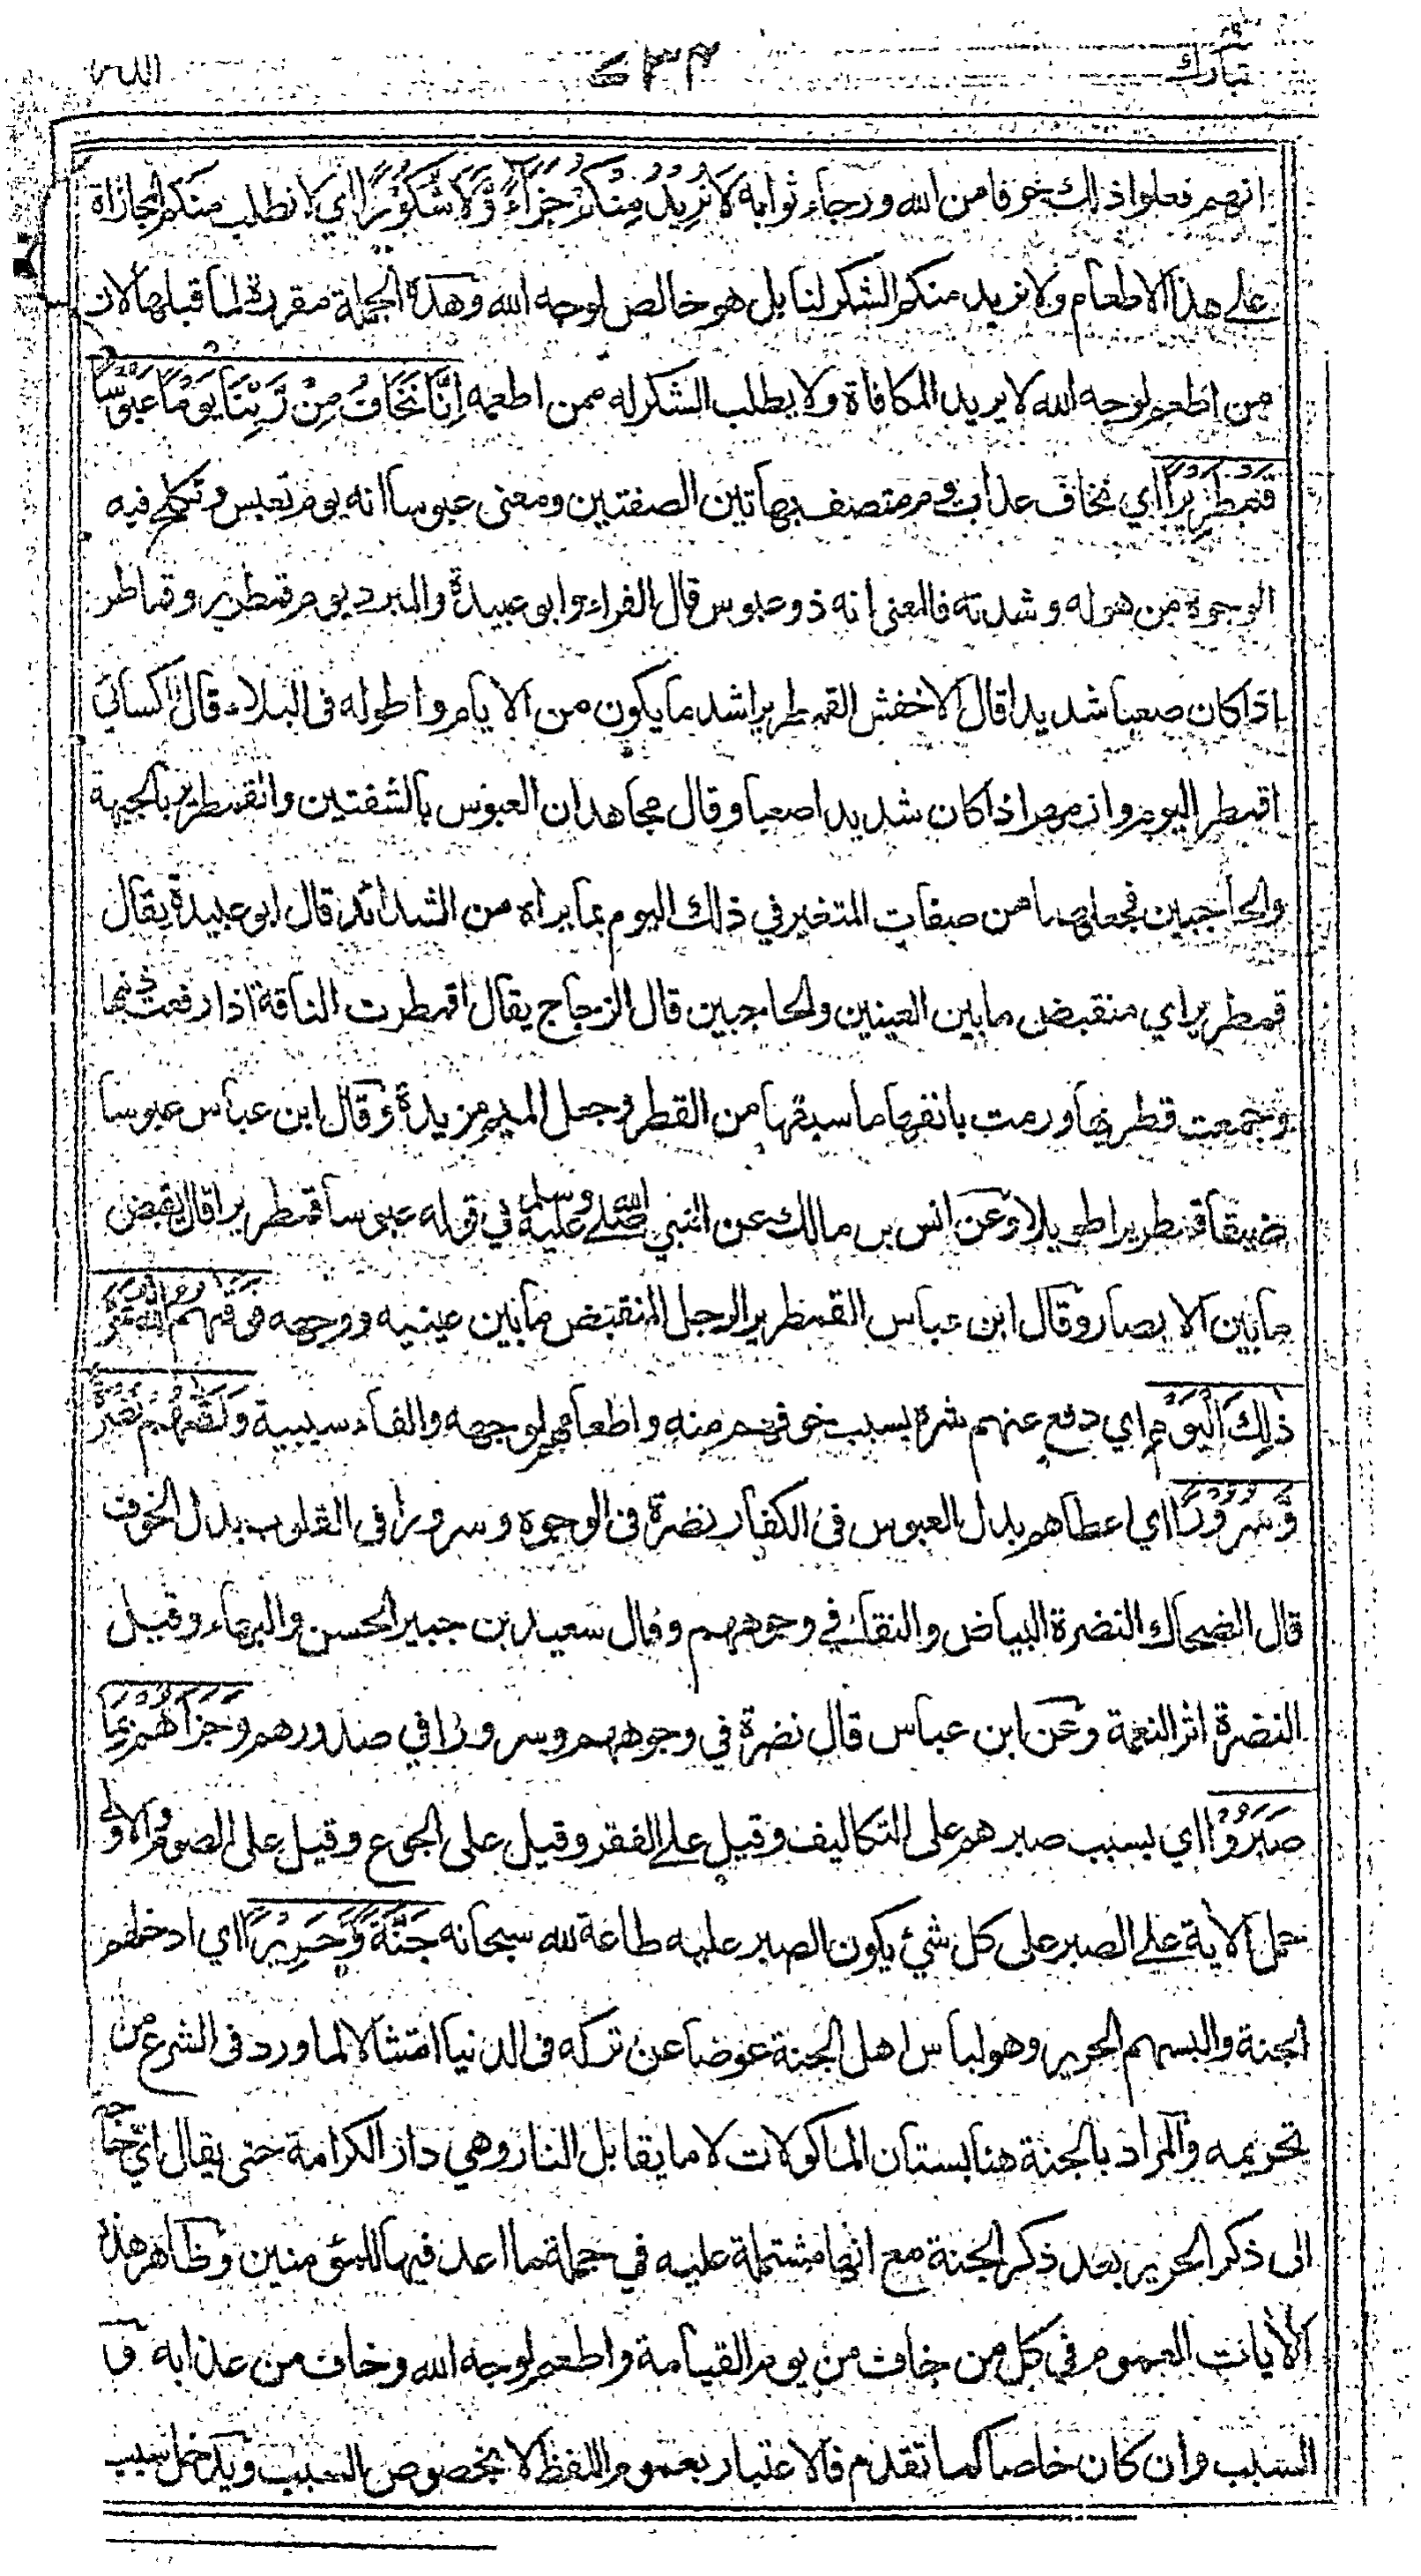 تبارك ٢٣٤ الدهر
انهم فعلوا ذلك خوفا من الله ورجاء ثوابه لَا نُرِيْدُ مِنْكُمْ جَزَآءً وَّلَا شُكُوْرًا اي لا نطلب منكم المجازاة
على هذا الاطعام ولا نريد منكم الشكر لنا بل هو خالص لوجه الله وهذه الجملة مقررة لما قبلها لان
من اطعم لوجه الله لا يريد المكافاة ولا يطلب الشكر له ممن اطعمه اِنَّا نَخَافُ مِنْ رَّبِّنَا يَوْمًا عَبُوْسًا
قَمْطَرِيْرًا اي نخاف عذاب يوم متصف بهاتين الصفتين ومعنى عبوسا انه يوم تعبس وتكلح فيه
الوجوه من هوله وشدته فالمعنى انه ذو عبوس قال الفراء وابو عبيدة والمبرد يوم قمطرير وقماطر
اذا كان صعبا شديدا قال الاخفش القمطرير اشد ما يكون من الايام واطوله فى البلاء قال الكسائي
اقمطر اليوم وازمهر اذا كان شديدا صعبا وقال مجاهد ان العبوس بالشفتين والقمطرير بالجبهة
والحاجبين فجعلهما من صفات المتغير في ذلك اليوم بما يراه من الشدائد قال ابو عبيدة يقال
قمطرير اي منقبض ما بين العينين والحاجبين قال الزجاج يقال اقمطرت الناقة اذا رفعت ذنبها
وجمعت قطريها ورمت بانفها ما سبقها من القطر وجعل الميم مزيدة وقال ابن عباس عبوسا
ضيقا قمطريرا طويلا وعن انس بن مالك عن النبي صلى الله عليه وسلم في قوله عبوسا قمطريرا قال يقبض
ما بين الابصار وقال ابن عباس القمطرير الرجل المنقبض ما بين عينيه ووجهه فَوَقٰهُمُ اللّٰهُ شَرَّ
ذٰلِكَ الْيَوْمِ اي دفع عنهم شره بسبب خوفهم منه واطعامهم لوجهه والفاء سببية وَلَقّٰهُمْ نَضْرَةً
وَّسُرُوْرًا اي اعطاهم بدل العبوس فى الكفار نضرة فى الوجوه وسرورا فى القلوب بدل الخوف
قال الضحاك النضرة البياض والنقاء في وجوههم وقال سعيد بن جبير الحسن والبهاء وقيل
النضرة اثر النعمة وعن ابن عباس قال نضرة في وجوههم وسرورا في صدورهم وَجَزٰىهُمْ بِمَا
صَبَرُوْا اي بسبب صبرهم على التكاليف وقيل على الفقر وقيل على الجوع وقيل على الصوم والاولى
حمل الاية على الصبر على كل شيئ يكون الصبر عليه طاعة لله سبحانه جَنَّةً وَّحَرِيْرًا اي ادخلهم
الجنة والبسهم الحرير وهو لباس اهل الجنة عوضا عن تركه فى الدنيا امتثالا لما ورد فى الشرع من
تحريمه والمراد بالجنة هنا بستان الماكولات لا ما يقابل النار وهي دار الكرامة حتى يقال اي حاجة
الى ذكر الحرير بعد ذكر الجنة مع انها مشتملة عليه في جملة ما اعد فيها للمؤمنين وظاهر هذه
الأيات العموم في كل من خاف من يوم القيامة واطعم لوجه الله وخاف من عذابه و
السبب وان كان خاصا كما تقدم فالاعتبار بعموم اللفظ لا بخصوص السبب ويدخل سبب